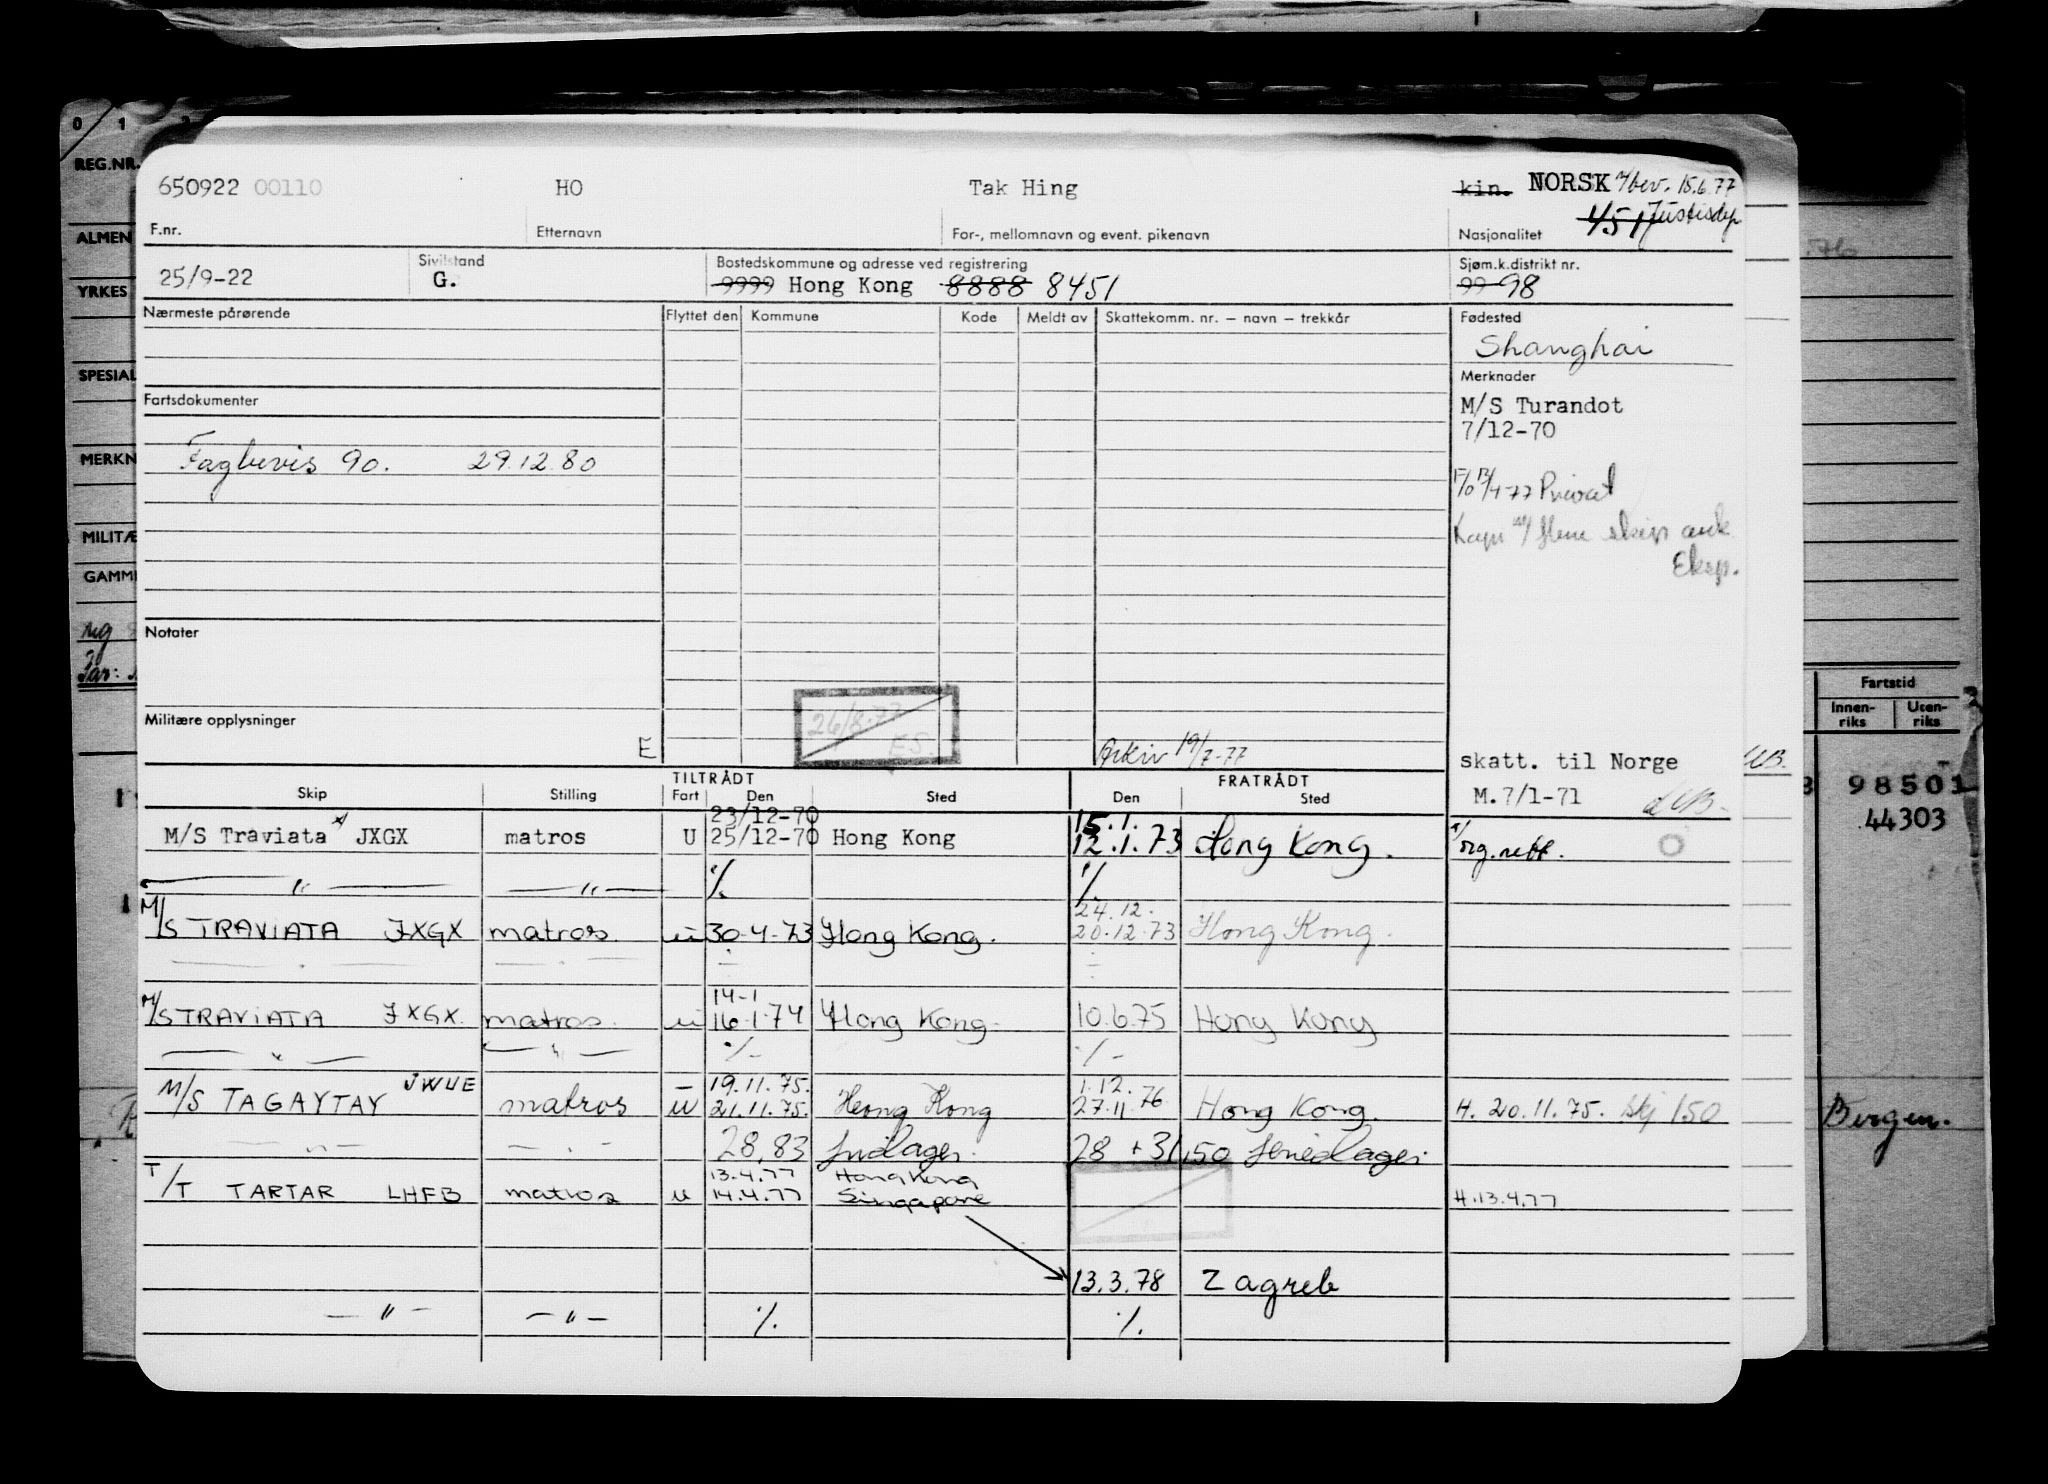 0 1
REG.NR.
ALMEN
YRKES
SPESIAL
MERKN
MILITÆ
GAMM
650922 00110 HO Tak Hing kin. NORSK m/bev. 15.6.77
451 Justisdep
F.nr. Etternavn For-, mellomnavn og event. pikenavn Nasjonalitet
25/9-22 Sivilstand G. Bostedskommune og adresse ved registrering Sjøm.k.distrikt nr.
9999 Hong Kong 8888 8451 99 98
Nærmeste pårørende Flyttet den Kommune Kode Meldt av Skattekomm. nr. – navn – trekkår Fødested
Shanghai
Merknader
Fartsdokumenter M/S Turandot
7/12-70
Fagbevis 90. 29.12.80
4-77 Privat
skip
Eksp.
Notater
26/8-77
E.S.
Militære opplysninger
E Arkiv 19/7-77 skatt. til Norge
M.7/1-71
TILTRÅDT FRATRÅDT
Skip Stilling Fart Den Sted Den Sted
23/12-70 15.1.
M/S Traviata JXGX matros U 25/12-70 Hong Kong 12.1.73 Hong Kong. org.
— " — — " — ./. ./.
24.12.
M/S TRAVIATA JXGX matros u 30-4-73 Hong Kong. 20.12.73 Hong Kong.
14-1
M/S TRAVIATA JXGX. matros. u 16.1.74 Hong Kong. 10.6.75 Hong Kong
— " — — " — ./. ./.
JWUE – 19.11.75. 1.12.
M/S TAGAYTAY matros u 21.11.75. Hong Kong 27.11 76 Hong Kong. H. 20.11.75. 150
— " — 28,83 28 + 31,50
13.4.77 Hong Kong
T/T TARTAR LHFB matros u 14.4.77 Singapore H.13.4.77
13.3.78 Zagreb
— " — — " — ./. ./.
Fartstid
Innen-riks Uten-riks
98501
44303
Bergen.